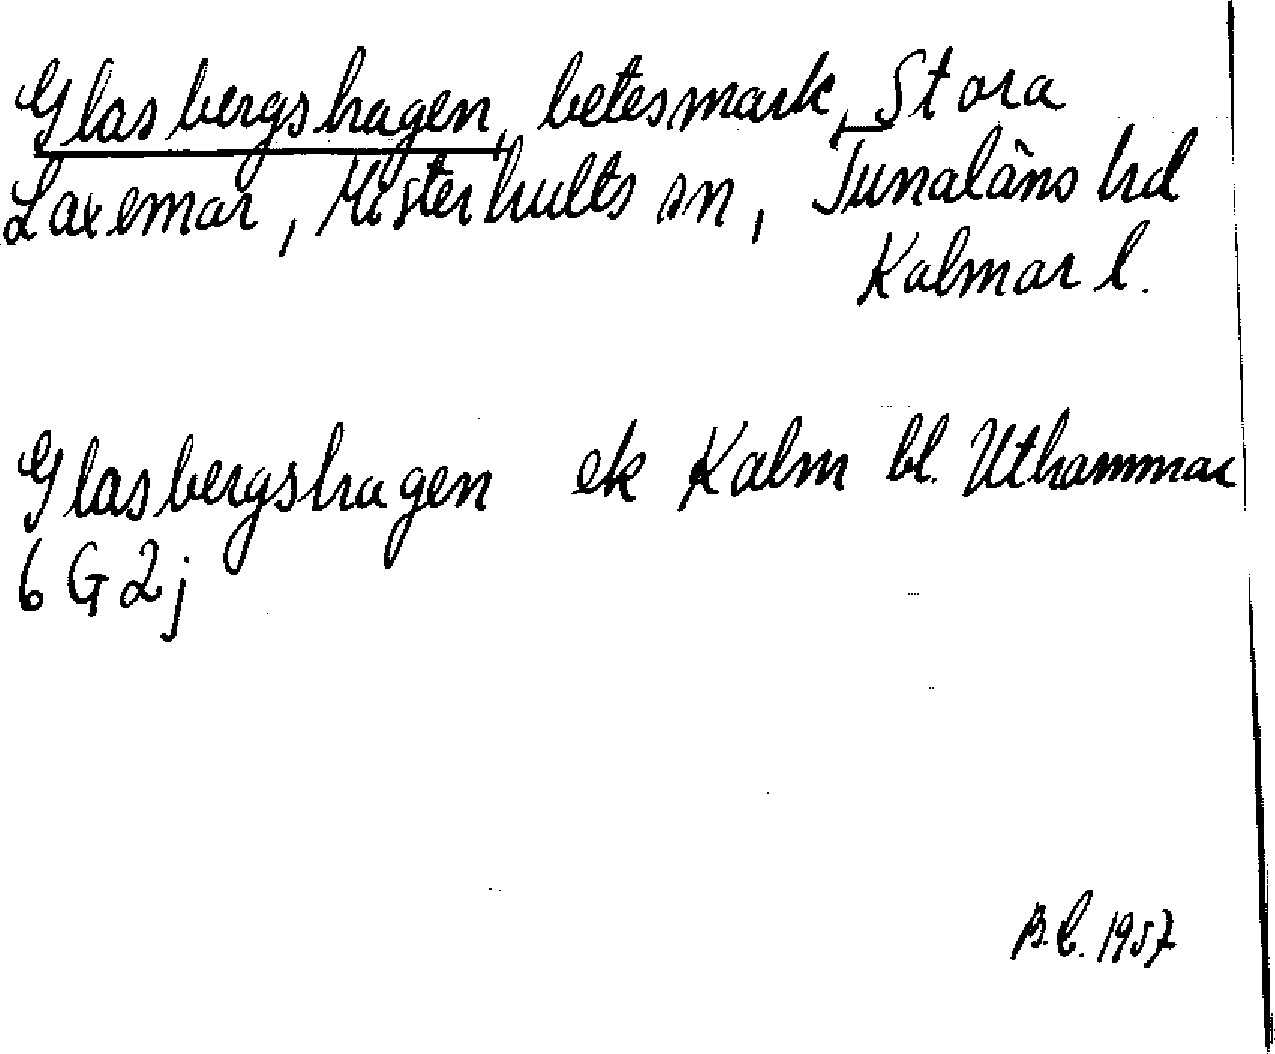 Glasbergshagen, betesmark, Stora
Laxemar, Misterhults sn, Tunaläns hd
Kalmar l.
Glasbergshagen ek Kalm bl. Uthammar
6 G 2 j
B.C. 1957